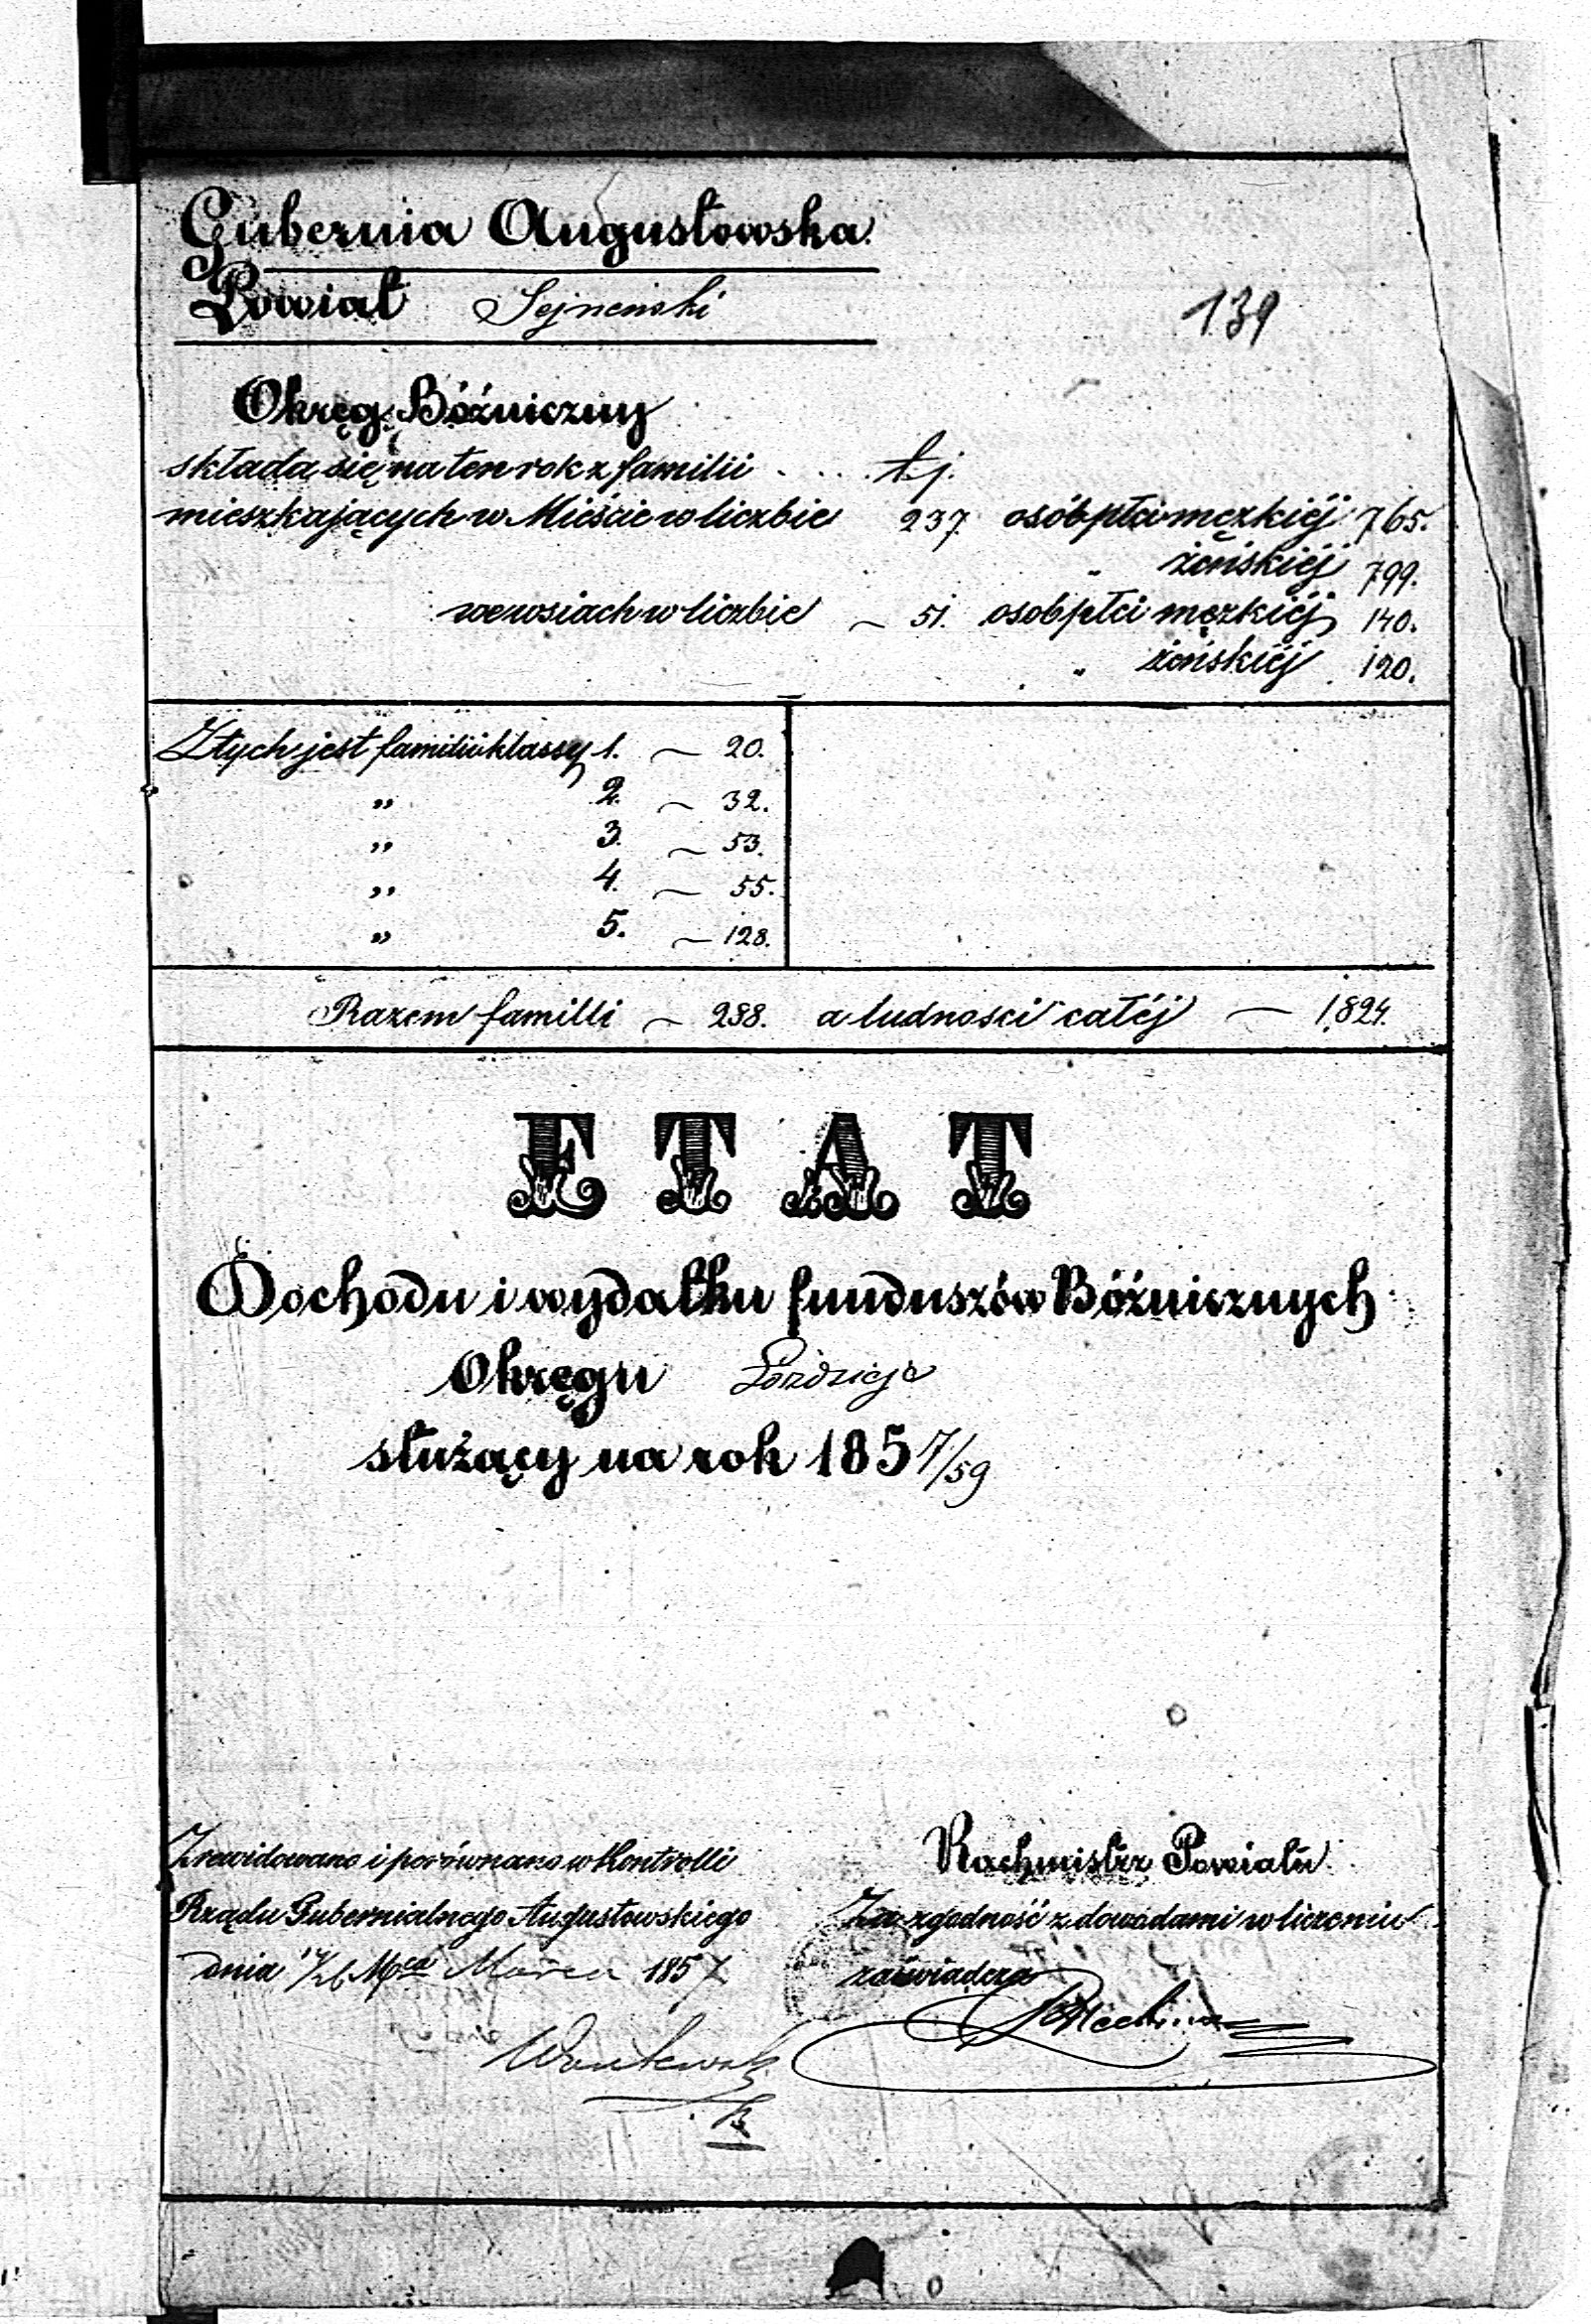 Gubernia Augustowska.
Powiat Sejneński
139
Okręg Bóźniczny
składa się na ten rok z familii . . . . t.j.
mieszkających w Mieście w liczbie 237. osób płci męzkiéj 765.
„ żeńskiéj 799.
we wsiach w liczbie ~ 51. osob płci męzkiéj 140.
„ żeńskiéj 120.
Z tych jest familii klassy 1. ~ 20.
„ 2. ~ 32.
„ 3. ~ 53.
„ 4. ~ 55.
„ 5. ~ 128.
Razem familli ~ 288. a ludnosci całéj — 1,824.
ETAT
Dochodu i wydatku funduszów Bóźnicznych
Okręgu Łozdzieje
służący na rok 1857/59
Zrewidowano i porównano w Kontrolli
Rządu Gubernialnego Augustowskiego
dnia Mca Marca 1857
Rachmistrz Powiatu
Za zgodność z dowodami w liczeniu
zaświadcza